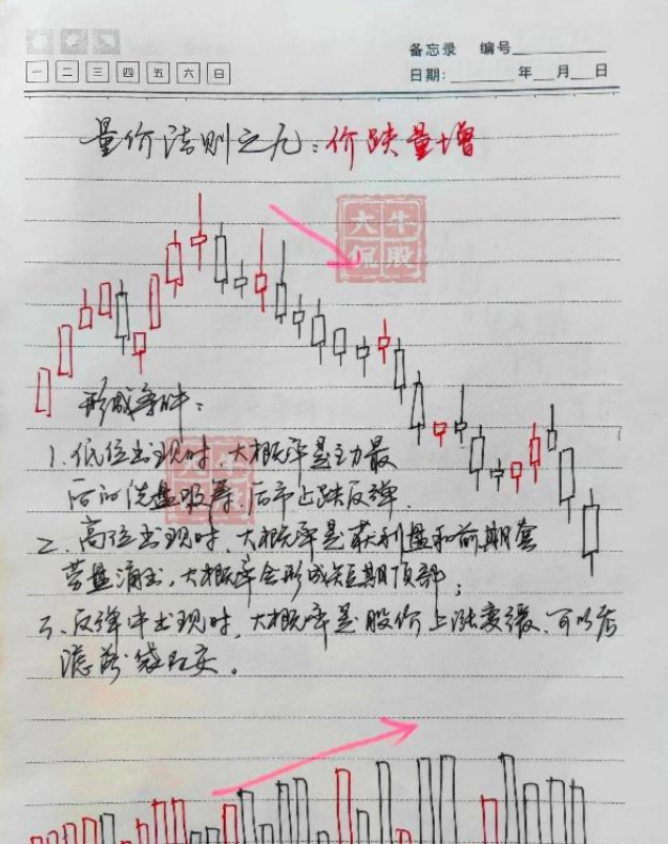 备忘录 编号
一 二 三 四 五 六 日
日期: 年 月 日
量价法则之九:价跌量增
大牛
侃股
形成条件:
1.低位出现时,大概率是主力最
后的洗盘吸筹,后市止跌反弹.
2、高位出现时,大概率是获利盘和前期套
牢盘涌出,大概率会形成短期顶部;
3、反弹中出现时,大概率是股价上涨变缓,可以考
虑落袋为安。
大牛